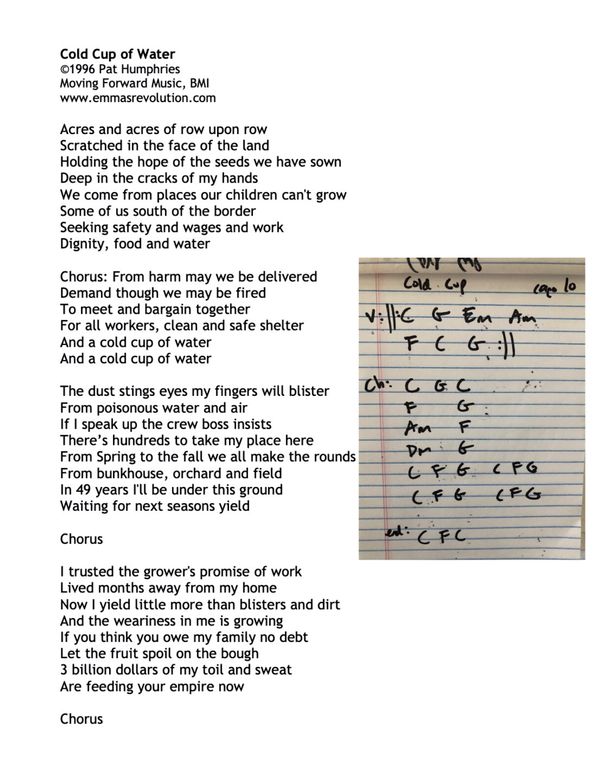 Cold Cup of Water
©1996 Pat Humphries
Moving Forward Music, BMI
www.emmasrevolution.com
Acres and acres of row upon row
Scratched in the face of the land
Holding the hope of the seeds we have sown
Deep in the cracks of my hands
We come from places our children can't grow
Some of us south of the border
Seeking safety and wages and work
Dignity, food and water
Chorus: From harm may we be delivered
Demand though we may be fired
To meet and bargain together
For all workers, clean and safe shelter
And a cold cup of water
And a cold cup of water
The dust stings eyes my fingers will blister
From poisonous water and air
If I speak up the crew boss insists
There’s hundreds to take my place here
From Spring to the fall we all make the rounds
From bunkhouse, orchard and field
In 49 years I'll be under this ground
Waiting for next seasons yield
Chorus
I trusted the grower's promise of work
Lived months away from my home
Now I yield little more than blisters and dirt
And the weariness in me is growing
If you think you owe my family no debt
Let the fruit spoil on the bough
3 billion dollars of my toil and sweat
Are feeding your empire now
Chorus
Cold Cup capo 10
V: ||: C G Em Am
F C G :||
Ch: C G C
F G
Am F
Dm G
C F G C F G
C F G C F G
end: C F C